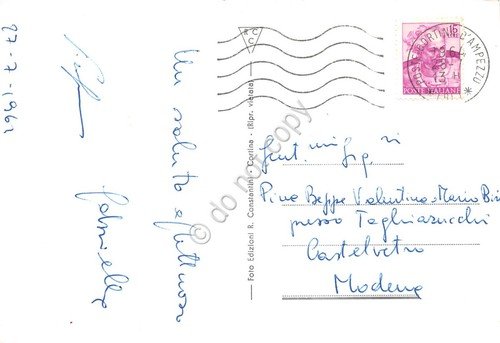 27-7-1962
Un saluto affettuoso
Gabriella
Foto Edizioni R. Constantini - Cortina - (Ripr. vietata)
CORTINA D'AMPEZZO
POSTE ITALIANE
Gent.mi Sig.ri
Pina Beppe Valentina-Mario Bi
presso Tagliazucchi
Castelvetro
Modena
do not copy